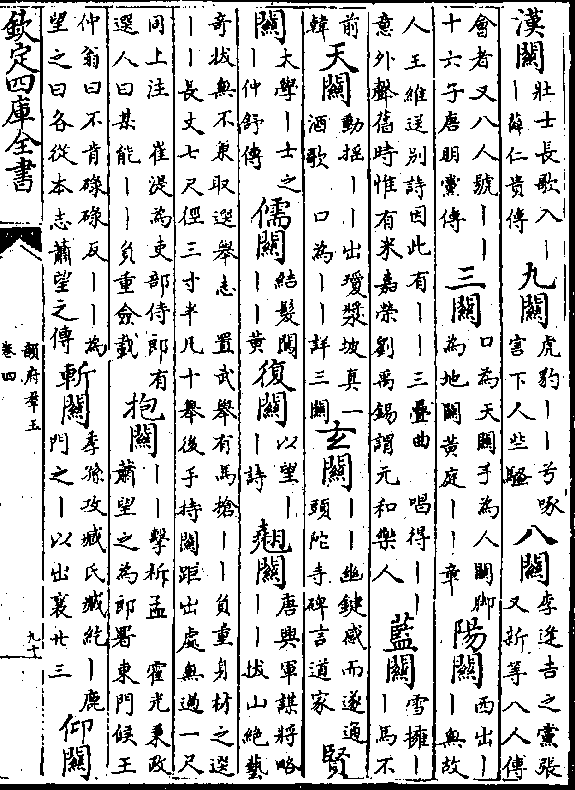 漢關 壯士長歌入丨丨薛仁貴傳 九關 虎豹丨丨兮啄害下人些騷 八關 李逢吉之黨張又新等八人傳
會者又八人號丨丨十六子唐明黨傳 三關 口為天關手為人關脚為地關黃庭丨丨章 陽關 西出丨丨無故
人王維送别詩因此有丨丨三疊曲 唱得丨丨意外聲舊時惟有米嘉榮劉禹錫謂元和樂人 藍關 雪擁丨丨馬不
前韓 天關 動摇丨丨出瓊漿坡真一酒歌 口為丨丨詳三關 玄關 丨丨幽鍵感而遂通頭陀寺碑言道家 賢
關 大學丨士之丨仲舒傳 儒關 結髮闖丨丨黄 復關 以望丨丨詩 翹關 唐興軍謀將略丨丨拔山絶藝
奇拔無不兼取選舉志 置武舉有馬槍丨丨負重身材之選丨丨長丈七尺徑三寸半凡十舉後手持關距出處無過一尺
同上注 崔湜為吏部侍郎有選人曰某能丨丨負重僉載 抱關 丨丨擊柝孟 霍光秉政蕭望之為郎署東門候王
仲翁曰不肯碌碌反丨丨為望之曰各從本志蕭望之傳 斬關 季孫攻臧氏臧紇丨鹿門之丨以出襄廿三 仰關
欽定四庫全書
韻府羣玉
卷四
九十